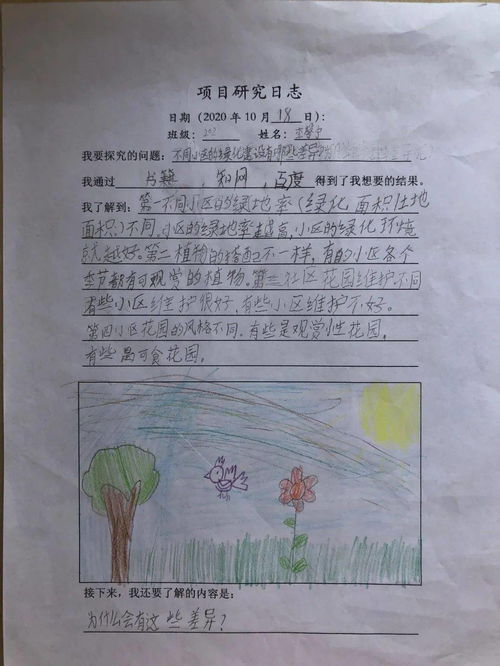 项目研究日志
日期（2020 年 10 月 18 日）：
班级： 姓名：
我要探究的问题：不同小区的绿化建设有哪些差异
我通过 书籍，知网，百度 得到了我想要的结果。
我了解到：第一不同小区的绿地率（绿化面积/土地
面积）不同，小区的绿地率越高，小区的绿化环境
就越好。第二植物的搭配不一样，有的小区各个
季节都有可观赏的植物。第三社区花园维护不同
有些小区维护很好，有些小区维护不好。
第四小区花园的风格不同。有些是观赏性花园，
有些是可食花园。
接下来，我还要了解的内容是：
为什么会有这些差异？